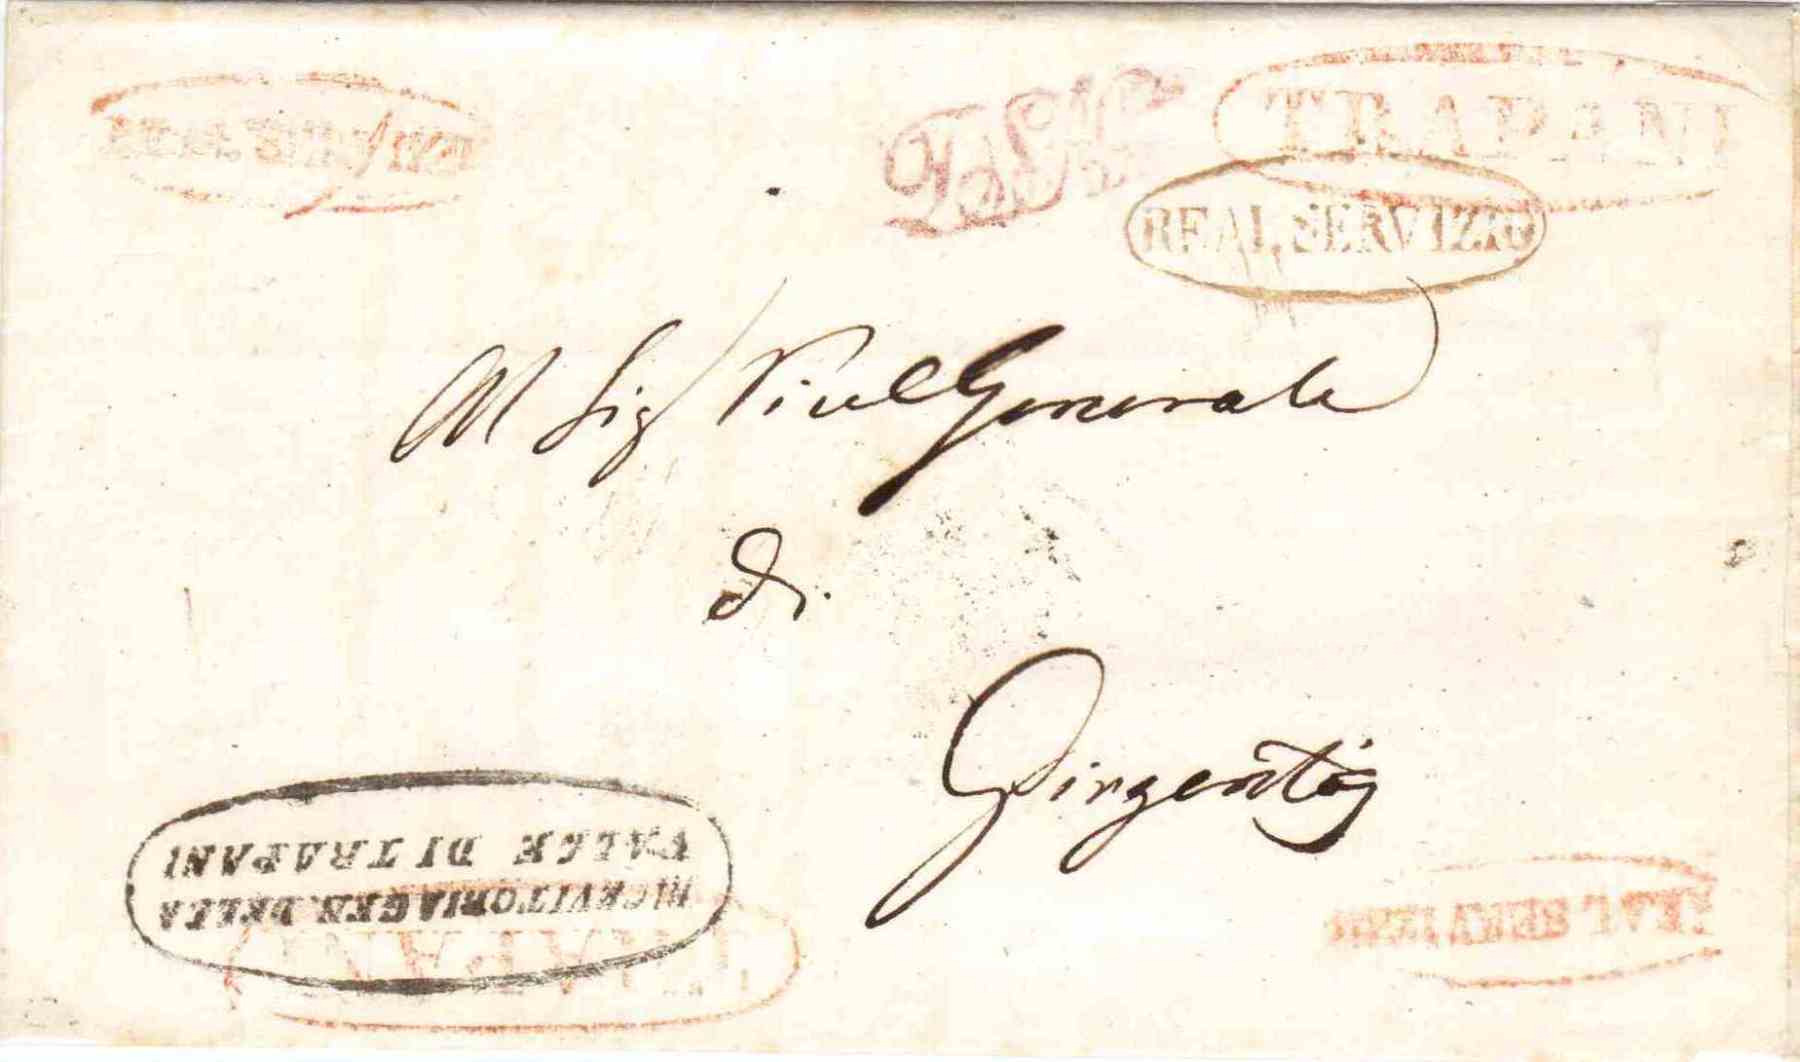 REAL SERVIZIO
TRAPANI
REAL SERVIZIO
Al Sig
Generale
di
Girgenti
RICEVITORIA GEN. DELLA
VALLE DI TRAPANI
TRAPANI
REAL SERVIZIO